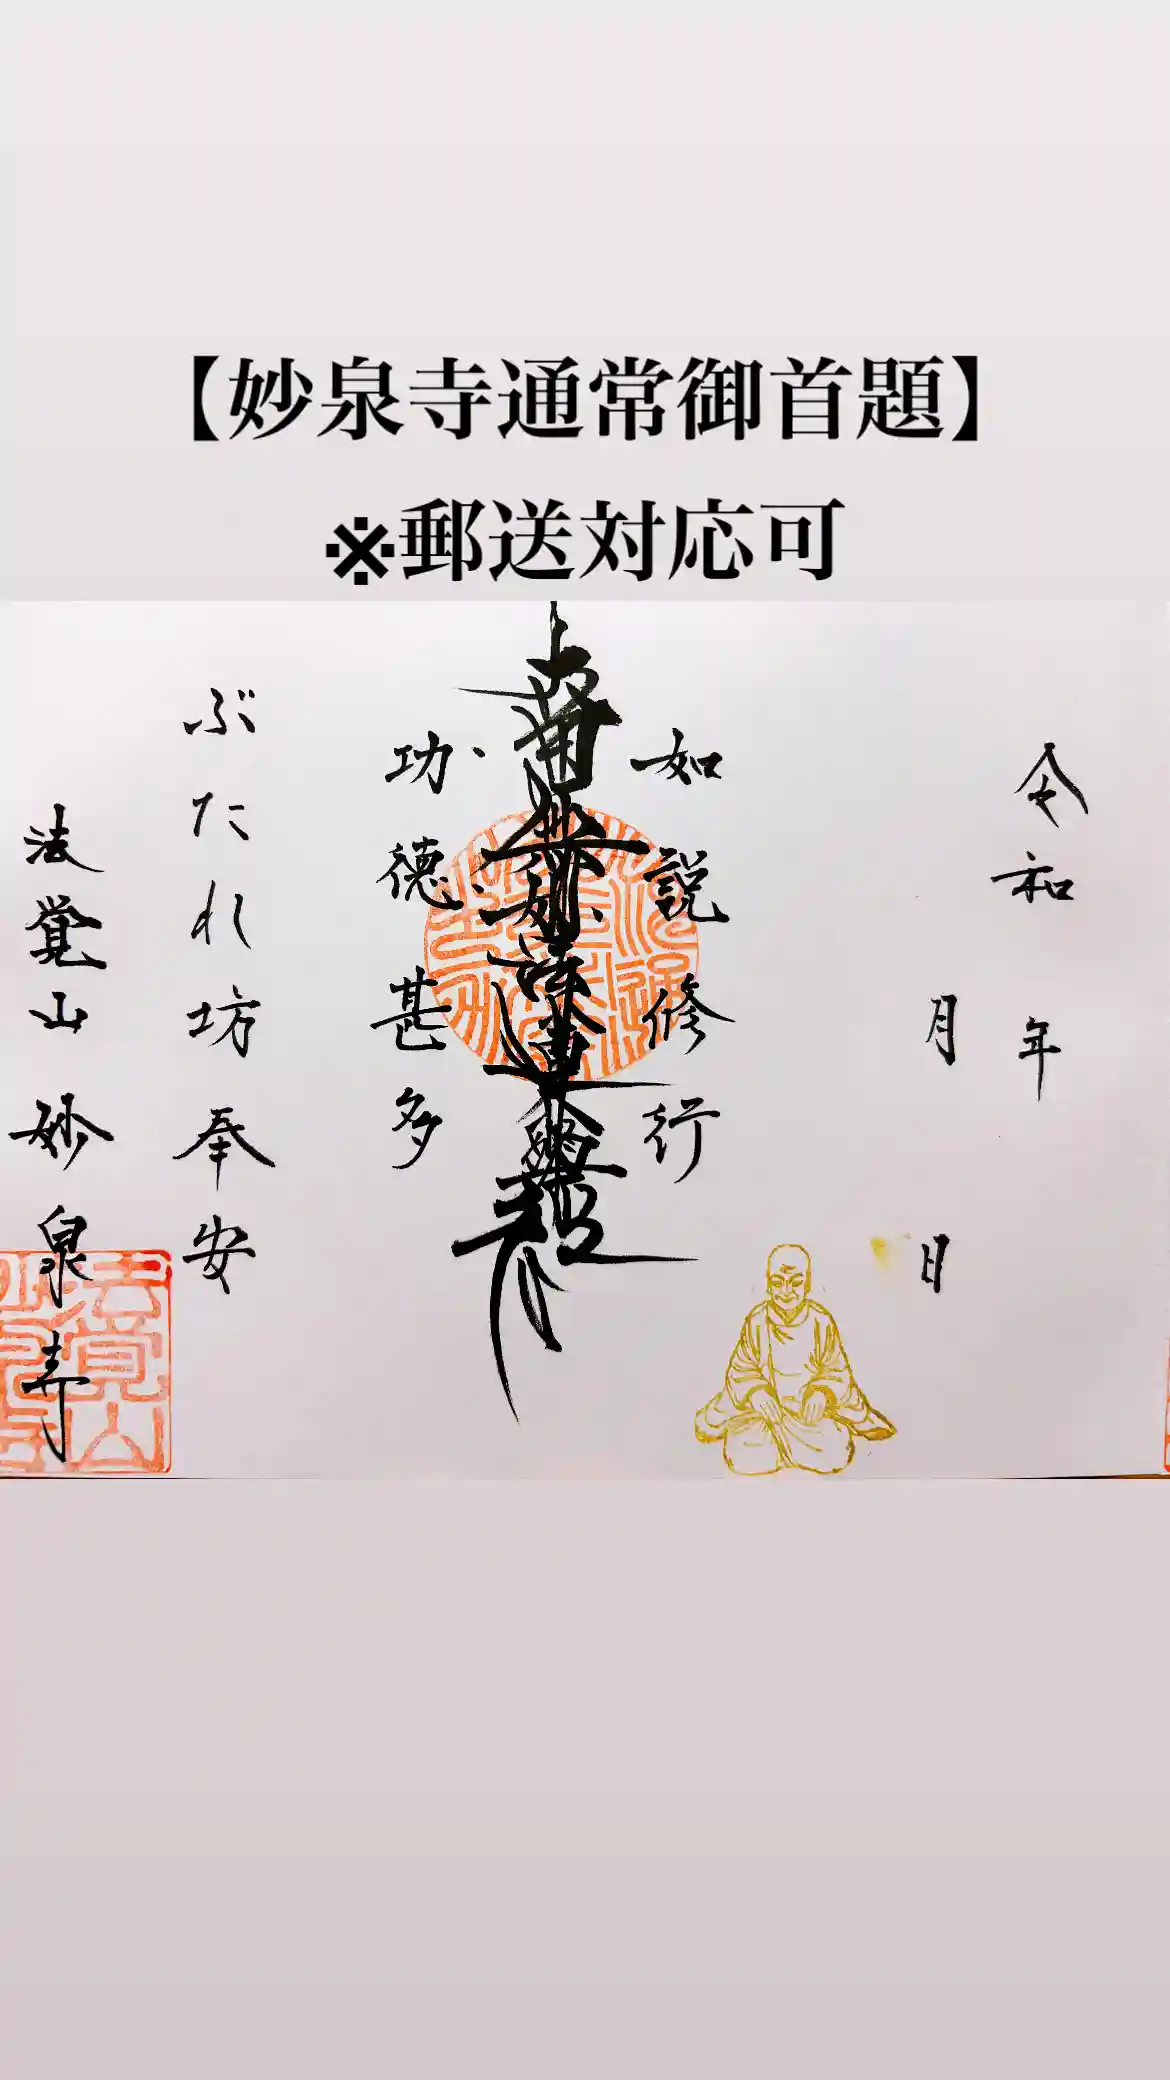 【妙泉寺通常御首題】
※郵送対応可
令和 年
月 日
如説修行
南無妙法蓮華経
功徳甚多
ぶたれ坊奉安
法覚山 妙泉寺
法覚山